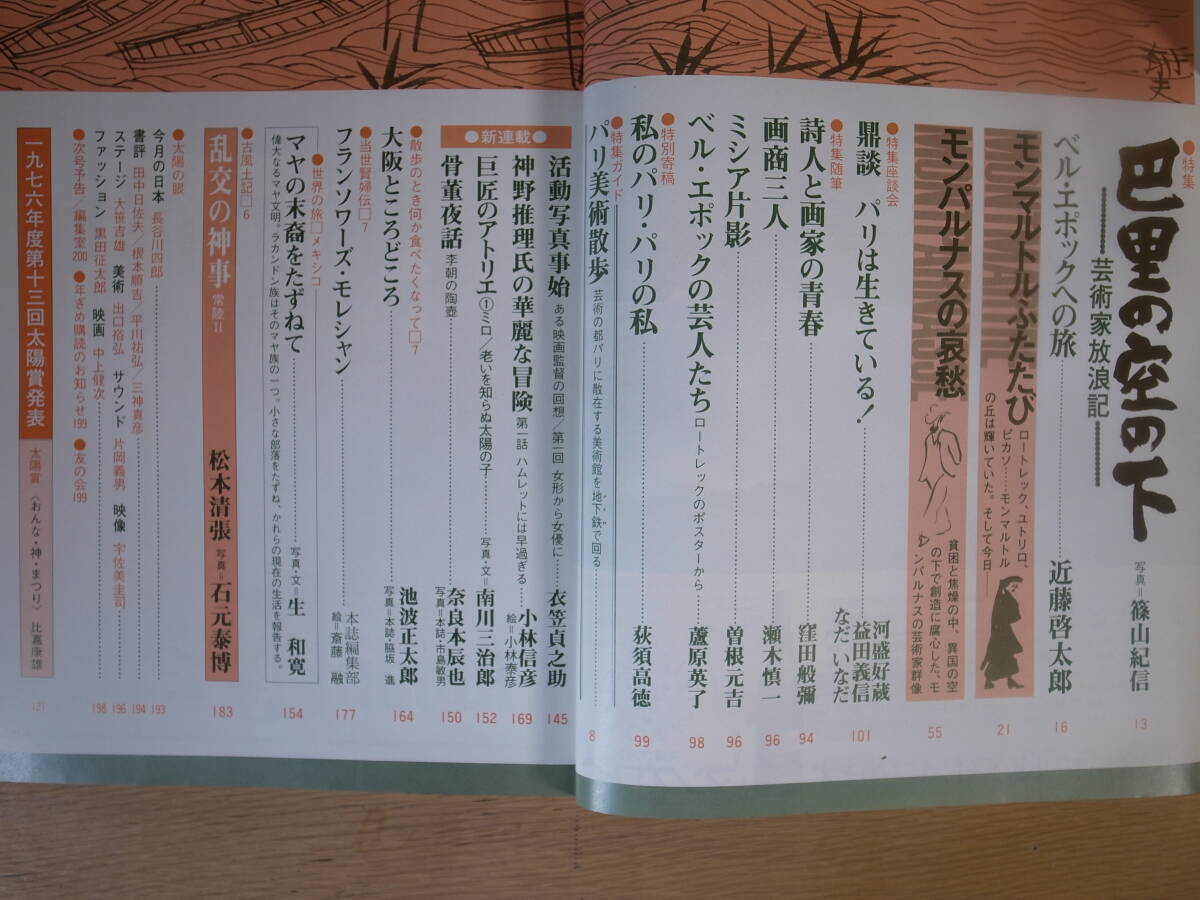 ●特集
巴里の空の下
芸術家放浪記
写真=篠山紀信
13
ベル・エポックへの旅
近藤啓太郎
16
モンマルトルふたたび
ロートレック、ユトリロ、
ピカソ……モンマルトル
の丘は輝いていた。そして今日──
21
モンパルナスの哀愁
貧困と焦燥の中、異国の空
の下で創造に腐心した、モ
ンパルナスの芸術家群像
55
●特集座談会
鼎談 パリは生きている!
河盛好蔵
益田義信
なだ いなだ
101
●特集随筆
詩人と画家の青春
窪田般彌
94
画商三人
瀬木慎一
96
ミシア片影
曽根元吉
96
ベル・エポックの芸人たち
ロートレックのポスターから
蘆原英了
98
●特別寄稿
私のパリ・パリの私
荻須高徳
99
●特集ガイド
パリ美術散歩
芸術の都パリに散在する美術館を地下鉄で回る
8
●新連載●
活動写真事始
ある映画監督の回想/第一回 女形から女優に
衣笠貞之助
145
神野推理氏の華麗な冒険
第一話 ハムレットには早過ぎる
小林信彦
絵=小林泰彦
169
巨匠のアトリエ
①ミロ/老いを知らぬ太陽の子
写真・文=南川三治郎
152
骨董夜話
李朝の陶壺
奈良本辰也
写真=本誌・市島敏男
150
●散歩のとき何か食べたくなって□7
大阪ところどころ
池波正太郎
写真=本誌・脇坂 進
164
●当世賢婦伝□7
フランソワーズ・モレシャン
本誌編集部
絵=斎藤 融
177
●世界の旅□メキシコ
マヤの末裔をたずねて
写真・文=生 和寛
偉大なるマヤ文明。ラカンドン族はそのマヤ族の一つ。小さな部落をたずね、かれらの現在の生活を報告する。
154
●古風土記□6
乱交の神事
常陸Ⅱ
松本清張
写真=石元泰博
183
●太陽の眼
今月の日本 長谷川四郎
193
書評 田中日佐夫/根本順吉/平川祐弘/三神真彦
194
ステージ 大笹吉雄 美術 出口裕弘 サウンド 片岡義男 映像 宇佐美圭司
196
ファッション 黒田征太郎 映画 中上健次
198
●次号予告/編集室200 ●年ぎめ購読のお知らせ199 ●友の会199
一九七六年度第十三回太陽賞発表
太陽賞 〈おんな・神・まつり〉 比嘉康雄
121